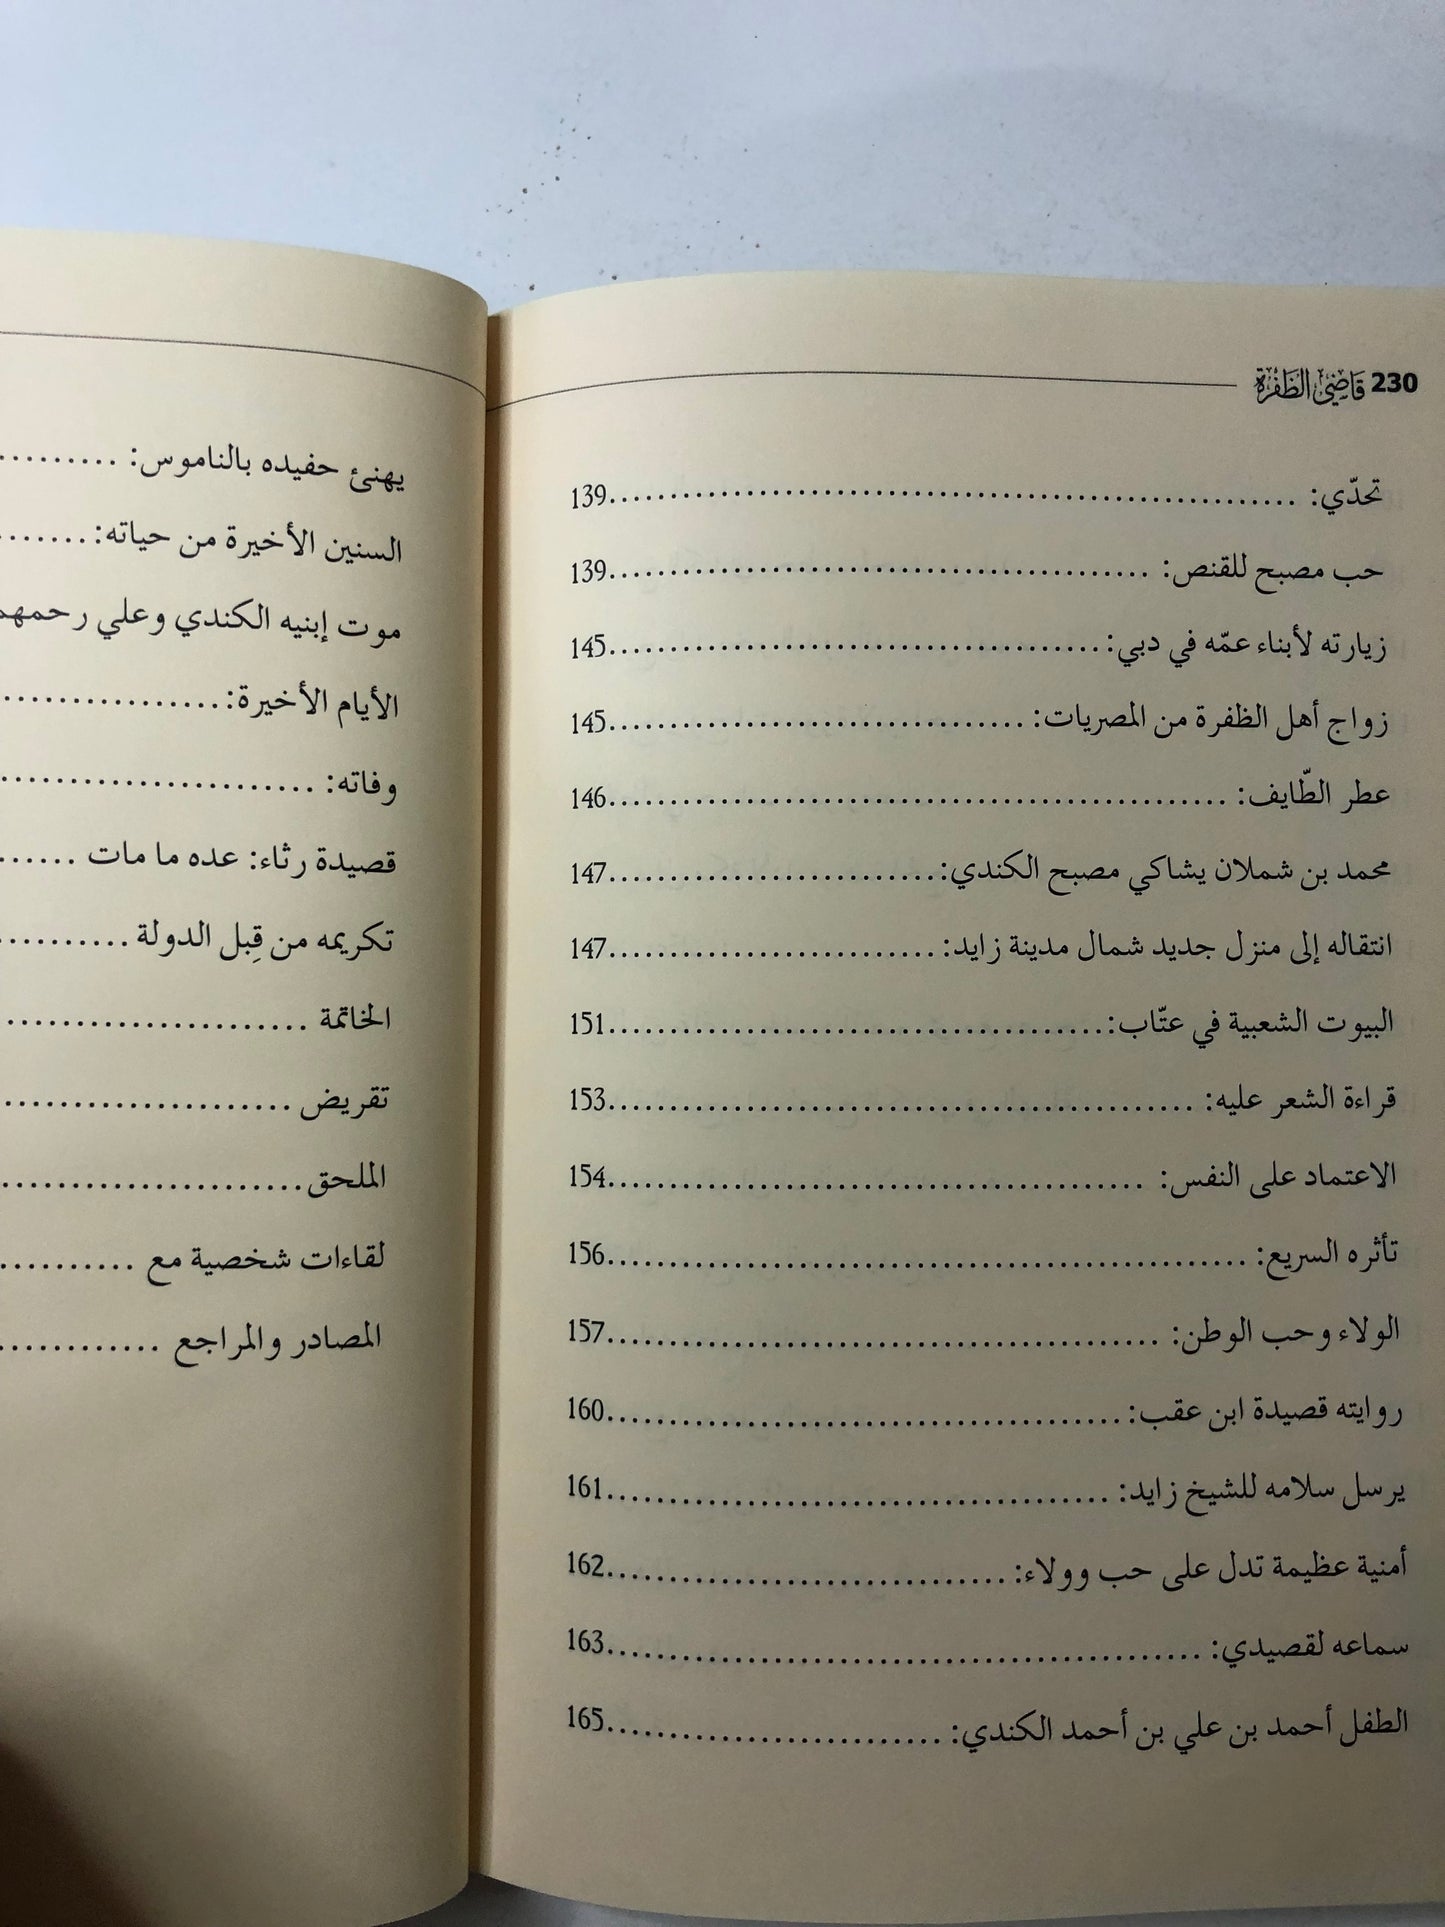 230 قَاضِي الظَفْرَة
تحدّي: ........................................................139
حب مصبح للقنص: ............................................139
زيارته لأبناء عمّه في دبي:........................................145
زواج أهل الظفرة من المصريات: ..................................145
عطر الطّايف: ..................................................146
محمد بن شملان يشاكي مصبح الكندي:...........................147
انتقاله إلى منزل جديد شمال مدينة زايد: ...........................147
البيوت الشعبية في عتّاب:.........................................151
قراءة الشعر عليه: ................................................153
الاعتماد على النفس: ............................................154
تأثره السريع: ....................................................156
الولاء وحب الوطن: .............................................157
روايته قصيدة ابن عقب: ..........................................160
يرسل سلامه للشيخ زايد: .........................................161
أمنية عظيمة تدل على حب وولاء: .................................162
سماعه لقصيدي: .................................................163
الطفل أحمد بن علي بن أحمد الكندي: ............................165
يهنئ حفيده بالناموس: .........
السنين الأخيرة من حياته:.......
موت إبنيه الكندي وعلي رحمهم
الأيام الأخيرة:................
وفاته: .......................
قصيدة رثاء: عده ما مات ......
تكريمه من قِبل الدولة ..........
الخاتمة ......................
تقريض .....................
الملحق......................
لقاءات شخصية مع ..........
المصادر والمراجع ............